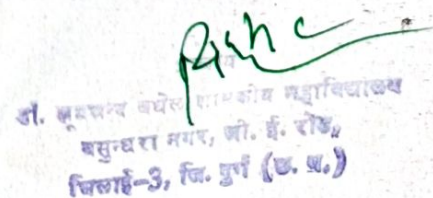 डॉ. खूबचन्द बघेल शासकीय महाविद्यालय
वसुन्धरा नगर, जी. ई. रोड,,
भिलाई-3, जि. दुर्ग (छ. ग.)